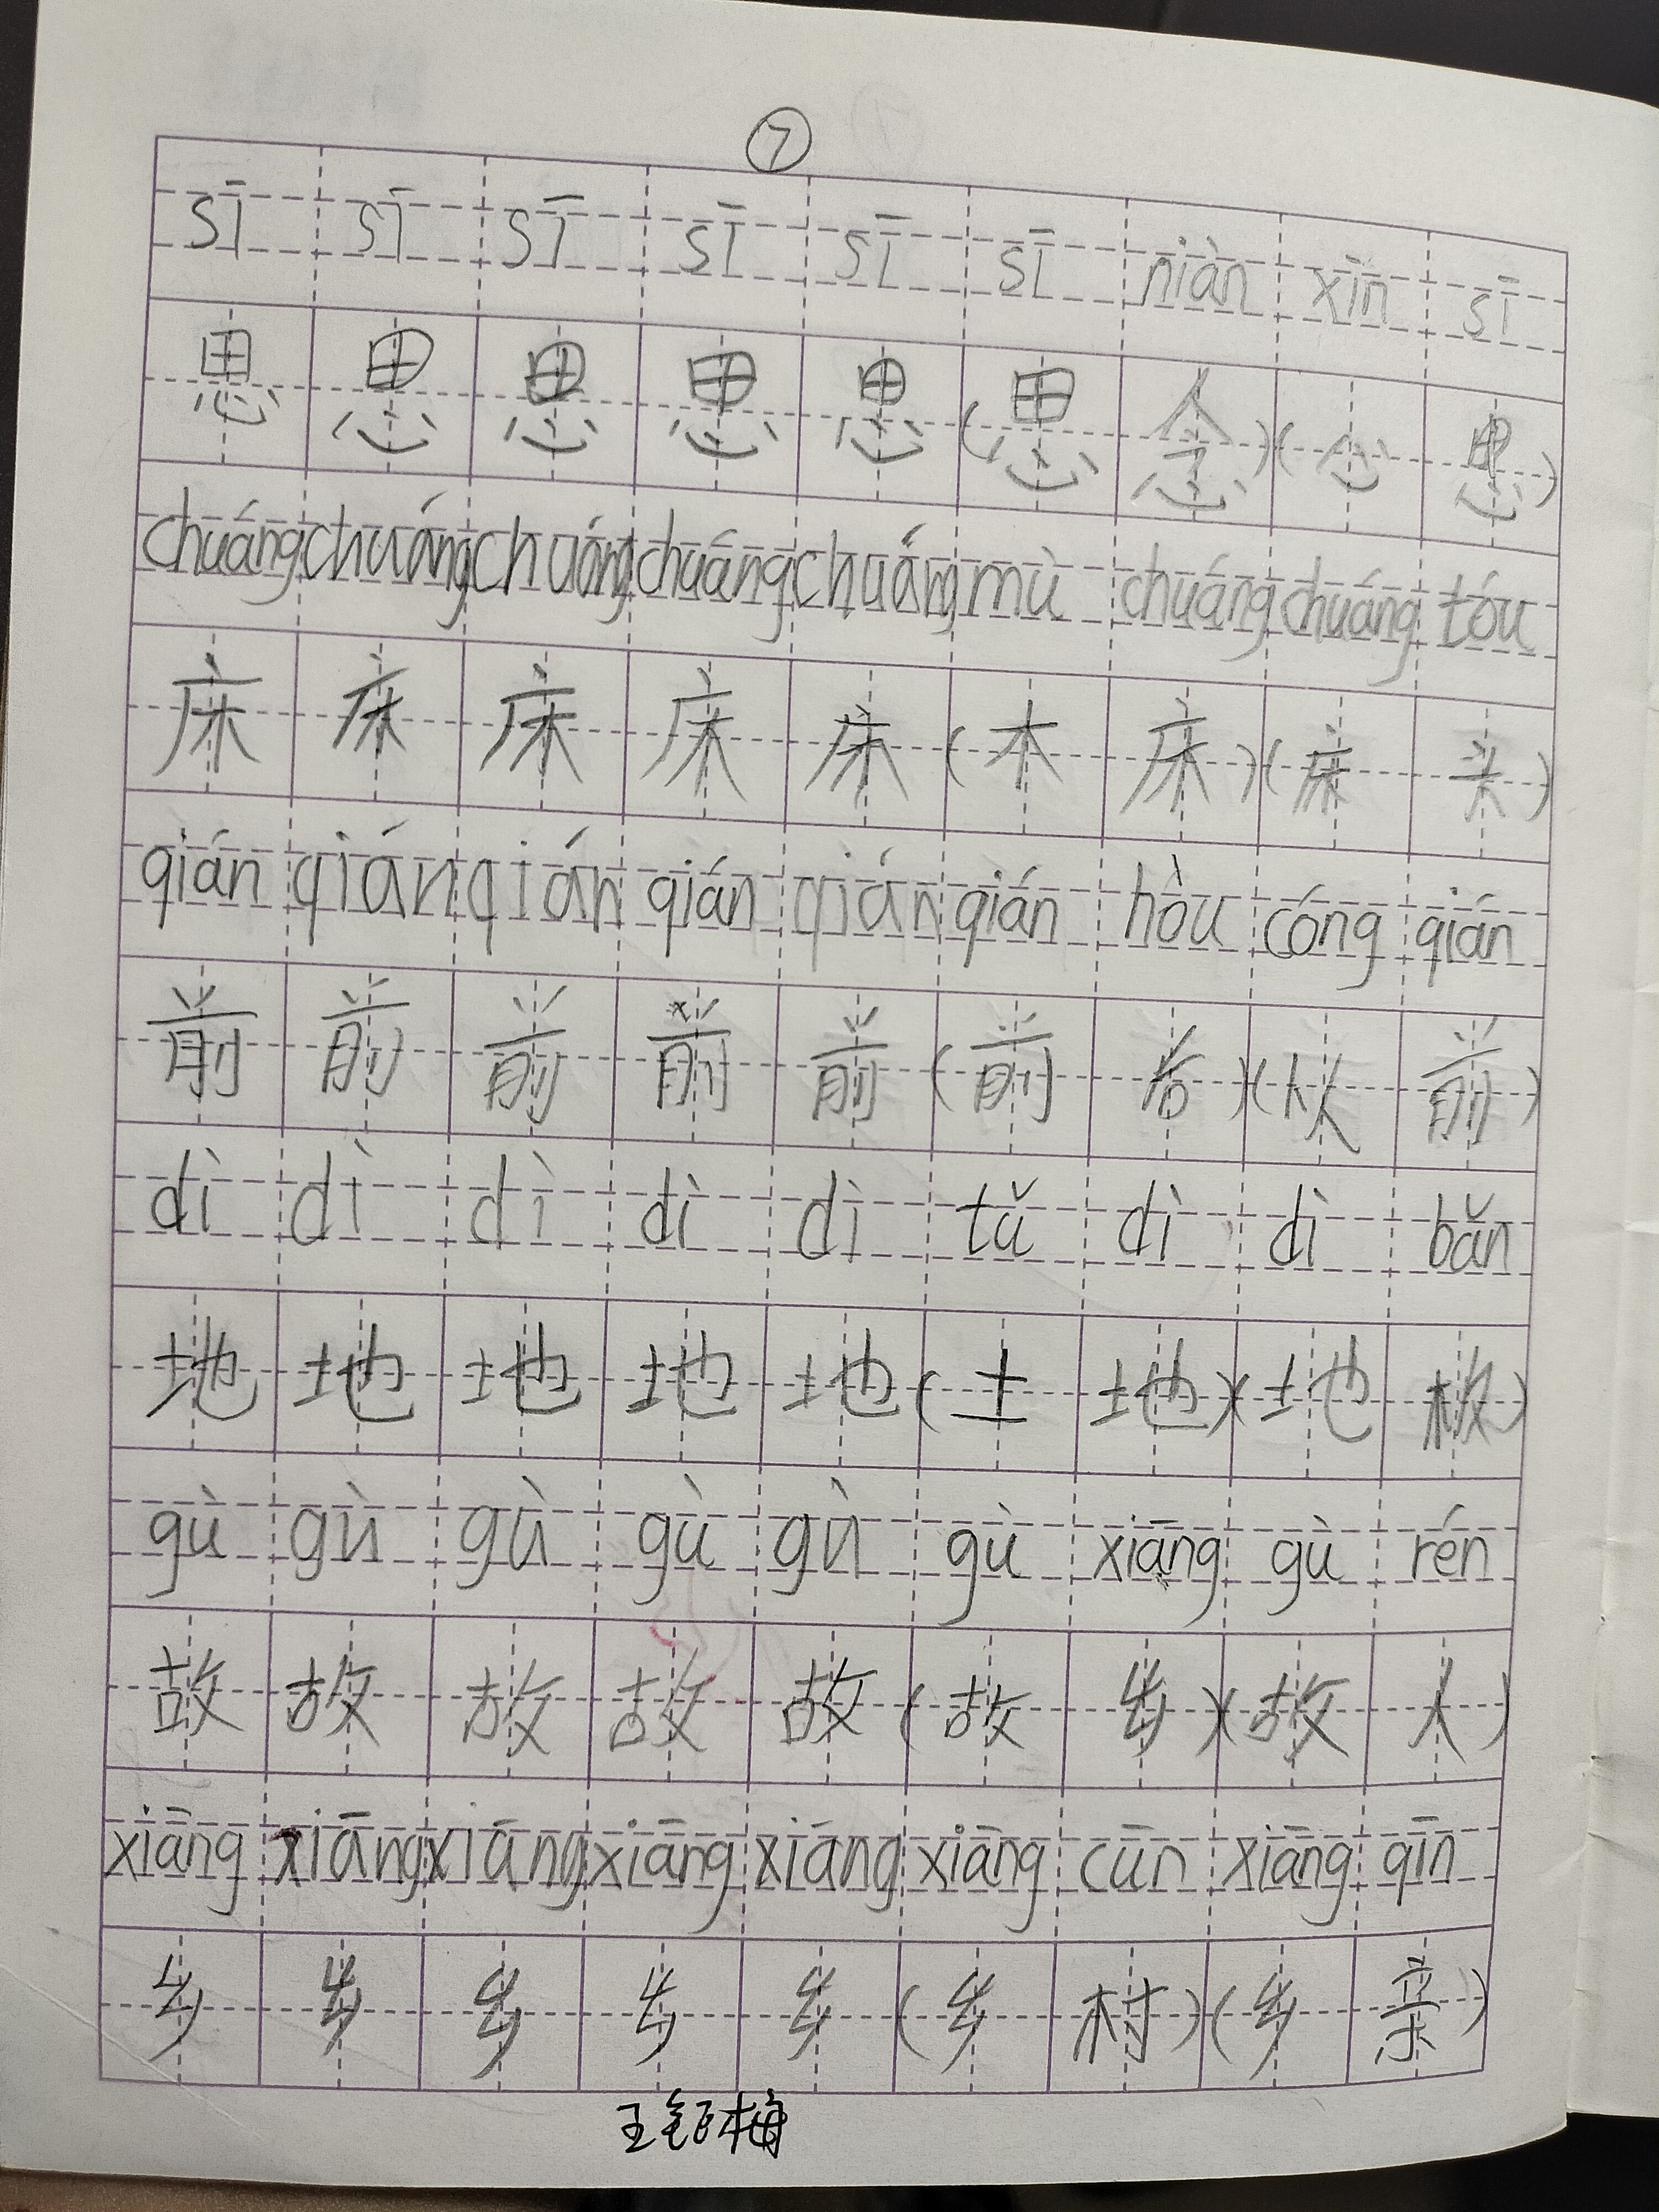 ⑦
sī sī sī sī sī sī niàn xīn sī
思 思 思 思 思 (思 念) (心 思)
chuáng chuáng chuáng chuáng chuáng mù chuáng chuáng tóu
床 床 床 床 床 (木 床) (床 头)
qián qián qián qián qián qián hòu cóng qián
前 前 前 前 前 (前 后) (从 前)
dì dì dì dì dì tǔ dì dì bǎn
地 地 地 地 地 (土 地) (地 板)
gù gù gù gù gù gù xiāng gù rén
故 故 故 故 故 (故 乡) (故 人)
xiāng xiāng xiāng xiāng xiāng xiāng cūn xiāng qīn
乡 乡 乡 乡 乡 (乡 村) (乡 亲)